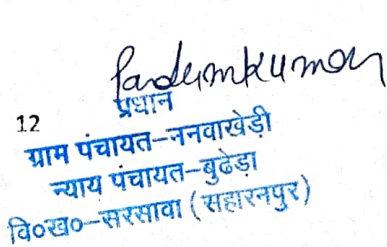 Pardumkumar
प्रधान
12
ग्राम पंचायत–ननवाखेड़ी
न्याय पंचायत–बुढेड़ा
वि०ख०–सरसावा (सहारनपुर)